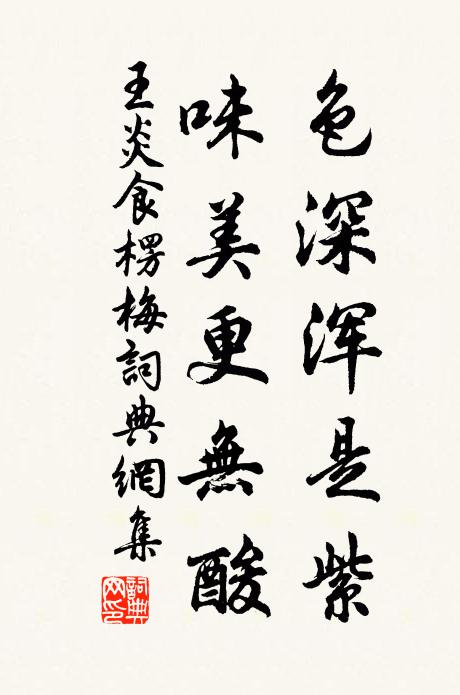 色深浑是紫
味美更無酸
王炎食楞梅詞典網集
詞典網印